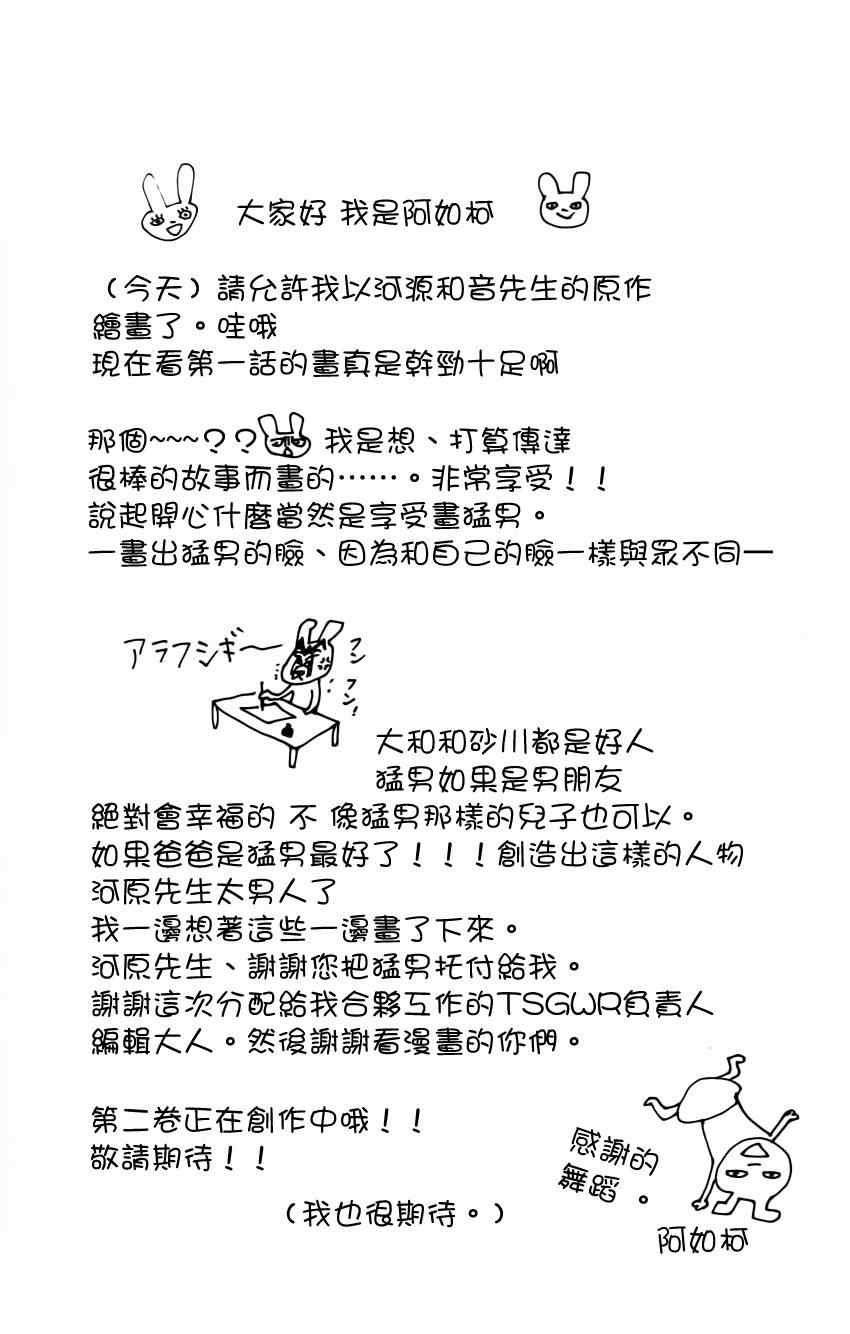 大家好 我是阿如柯
（今天）請允許我以河源和音先生的原作
繪畫了。哇哦
現在看第一話的畫真是幹勁十足啊
那個~~~？？ 我是想、打算傳達
很棒的故事而畫的……。非常享受！！
說起開心什麼當然是享受畫猛男。
一畫出猛男的臉、因為和自己的臉一樣與眾不同一
アラフシギ〜
フン
フン！
大和和砂川都是好人
猛男如果是男朋友
絕對會幸福的 不 像猛男那樣的兒子也可以。
如果爸爸是猛男最好了！！！創造出這樣的人物
河原先生太男人了
我一邊想著這些一邊畫了下來。
河原先生、謝謝您把猛男托付給我。
謝謝這次分配給我合夥互作的TSGWR負責人
編輯大人。然後謝謝看漫畫的你們。
第二卷正在創作中哦！！
敬請期待！！
（我也很期待。）
感謝的
舞蹈 。
阿如柯